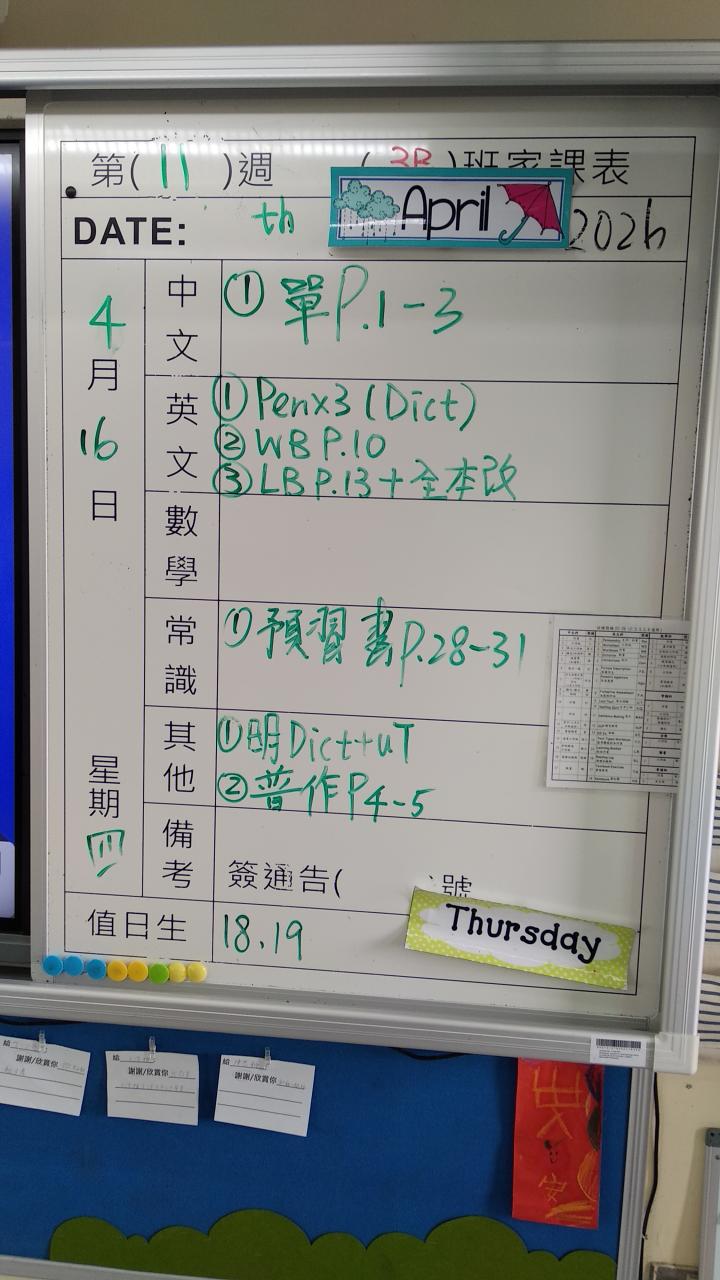 第( 11 )週 ( 3B )班家課表
DATE: th April 2026
4月16日 星期四
中文
① 單P.1-3
英文
① Penx3 (Dict)
② WB P.10
③ LB P.13 + 全本改
數學
常識
① 預習書P.28-31
其他
① 明Dict+uT
② 普作P4-5
備考
簽通告( 號
值日生
18.19
Thursday
給
謝謝/欣賞你
給
謝謝/欣賞你
給
謝謝/欣賞你
安